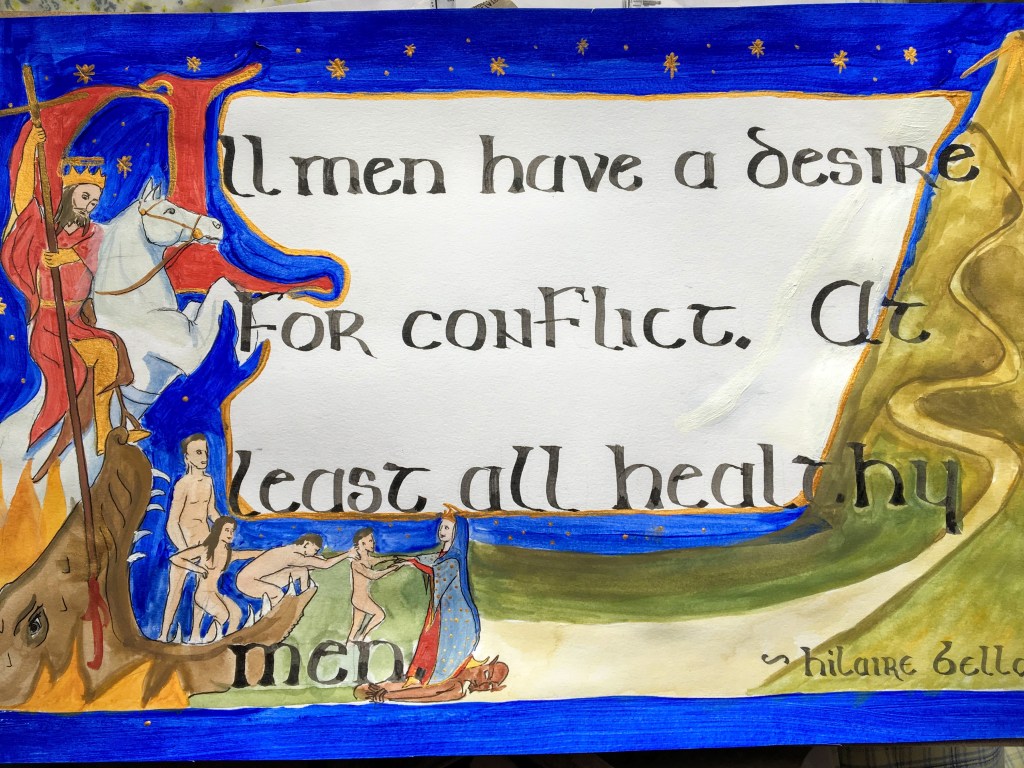 All men have a desire
for conflict. At
least all healthy
men.
~ hilaire bello